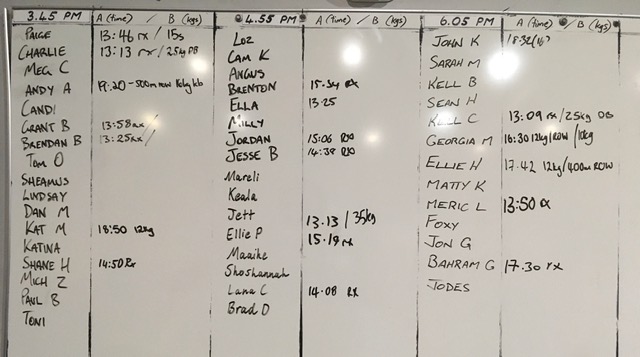 3.45 PM A (time) / B (kgs)
PAIGE 13:46 rx / 15s
CHARLIE 13:13 rx / 25kg PB
MEG C
ANDY A 19:20 - 500m row 16kg kb
CANDI
GRANT B 13:58 rx /
BRENDAN B 13:25 rx /
Tom O
SHEAMUS
LINDSAY
DAN M
KAT M 18:50 12kg
KATINA
SHANE H 14:50 Rx
MICH Z
PAUL B
TONI
4.55 PM A (time) / B (kgs)
Loz
CAM K
ANGUS
BRENTON 15:34 RX
ELLA 13:25
MILLY
JORDAN 15:06 RX
JESSE B 14:38 RX
Mareli
Keala
Jett 13.13 / 35kg
Ellie P 15.19 rx
Maaike
Shoshannah
Lana C 14:08 RX
Brad D
6.05 PM A (time) / B (kgs)
JOHN K 18:32
SARAH M
KELL B
SEAN H
KELL C 13:09 rx / 25kg DB
GEORGIA M 16:30 12kg/ROW / 10kg
ELLIE H 17.42 12kg/400m ROW
MATTY K
MERIC L 13:50 rx
FOXY
JON G
BAHRAM G 17.30 rx
JODES